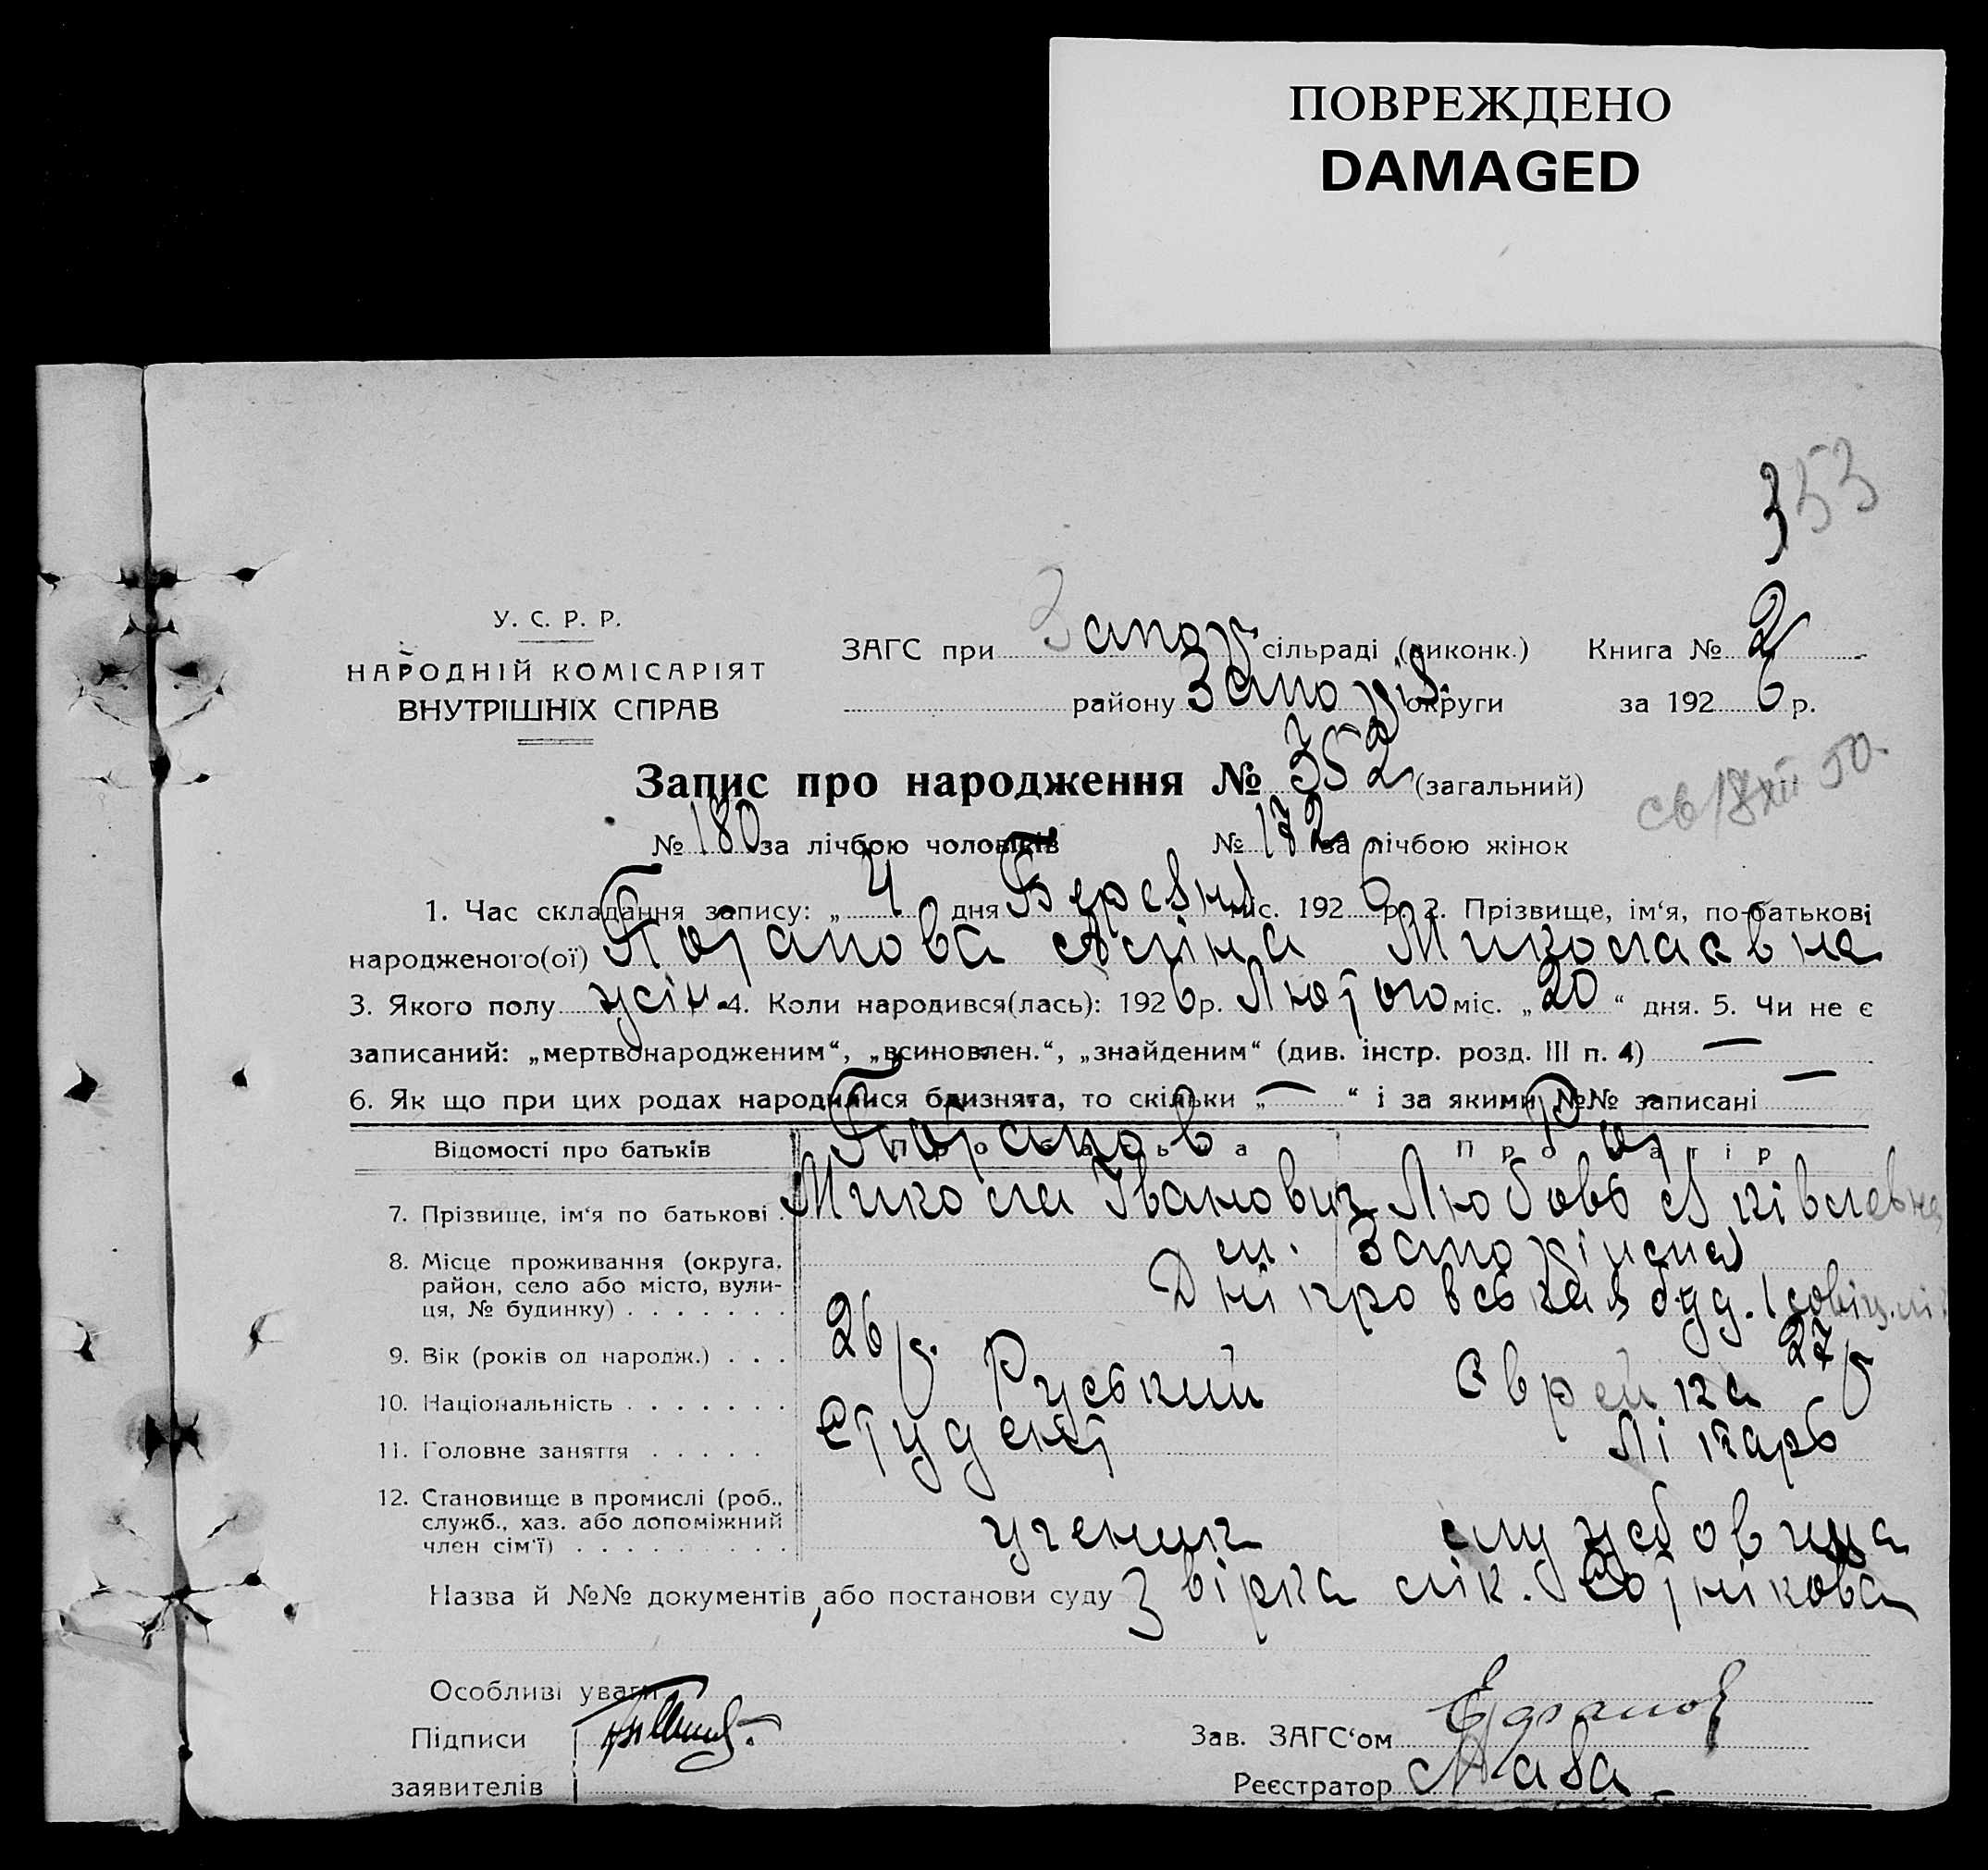 ПОВРЕЖДЕНО
DAMAGED
353
У. С. Р. Р.
НАРОДНІЙ КОМІСАРІЯТ
ВНУТРІШНІХ СПРАВ
ЗАГС при Запор сільраді (виконк.) Книга № 2
району Запоріз. округи за 1926 р.
Запис про народження № 352 (загальний)
св 18 XII 50.
№ 180 за лічбою чоловіків № 172 за лічбою жінок
1. Час складання запису: „ 4 дня Березня міс. 1926 р. 2. Прізвище, ім‘я, по-батькові
народженого(ої) Потапова Аліна Миколаєвна
3. Якого полу жін. 4. Коли народився(лась): 1926 р. Лютого міс. „ 20 “ дня. 5. Чи не є
записаний: „мертвонародженим“, „всиновлен.“, „знайденим“ (див. інстр. розд. III п. 4) —
6. Як що при цих родах народилися близнята, то скільки „ — “ і за якими №№ записані —
Відомості про батьків Про батька Про матір
Потапов
7. Прізвище, ім‘я по батькові . Микола Іванович Любовь Яківлевна
8. Місце проживання (округа, м.
район, село або місто, вули- Дніпровська буд.
ця, № будинку) . . . . . . .
9. Вік (років од народж.) . . . 26 р. 27 р
10. Національність . . . . . . . Руський Єврейка
11. Головне заняття . . . . . Студент Лікарь
12. Становище в промислі (роб.,
служб., хаз. або допоміжний
член сім‘ї) . . . . . . . . . учениг службовица
Назва й №№ документів, або постанови суду Звірка лік. Сотнікова
Особливі уваги
Підписи
Зав. ЗАГС‘ом
заявителів
Реєстратор